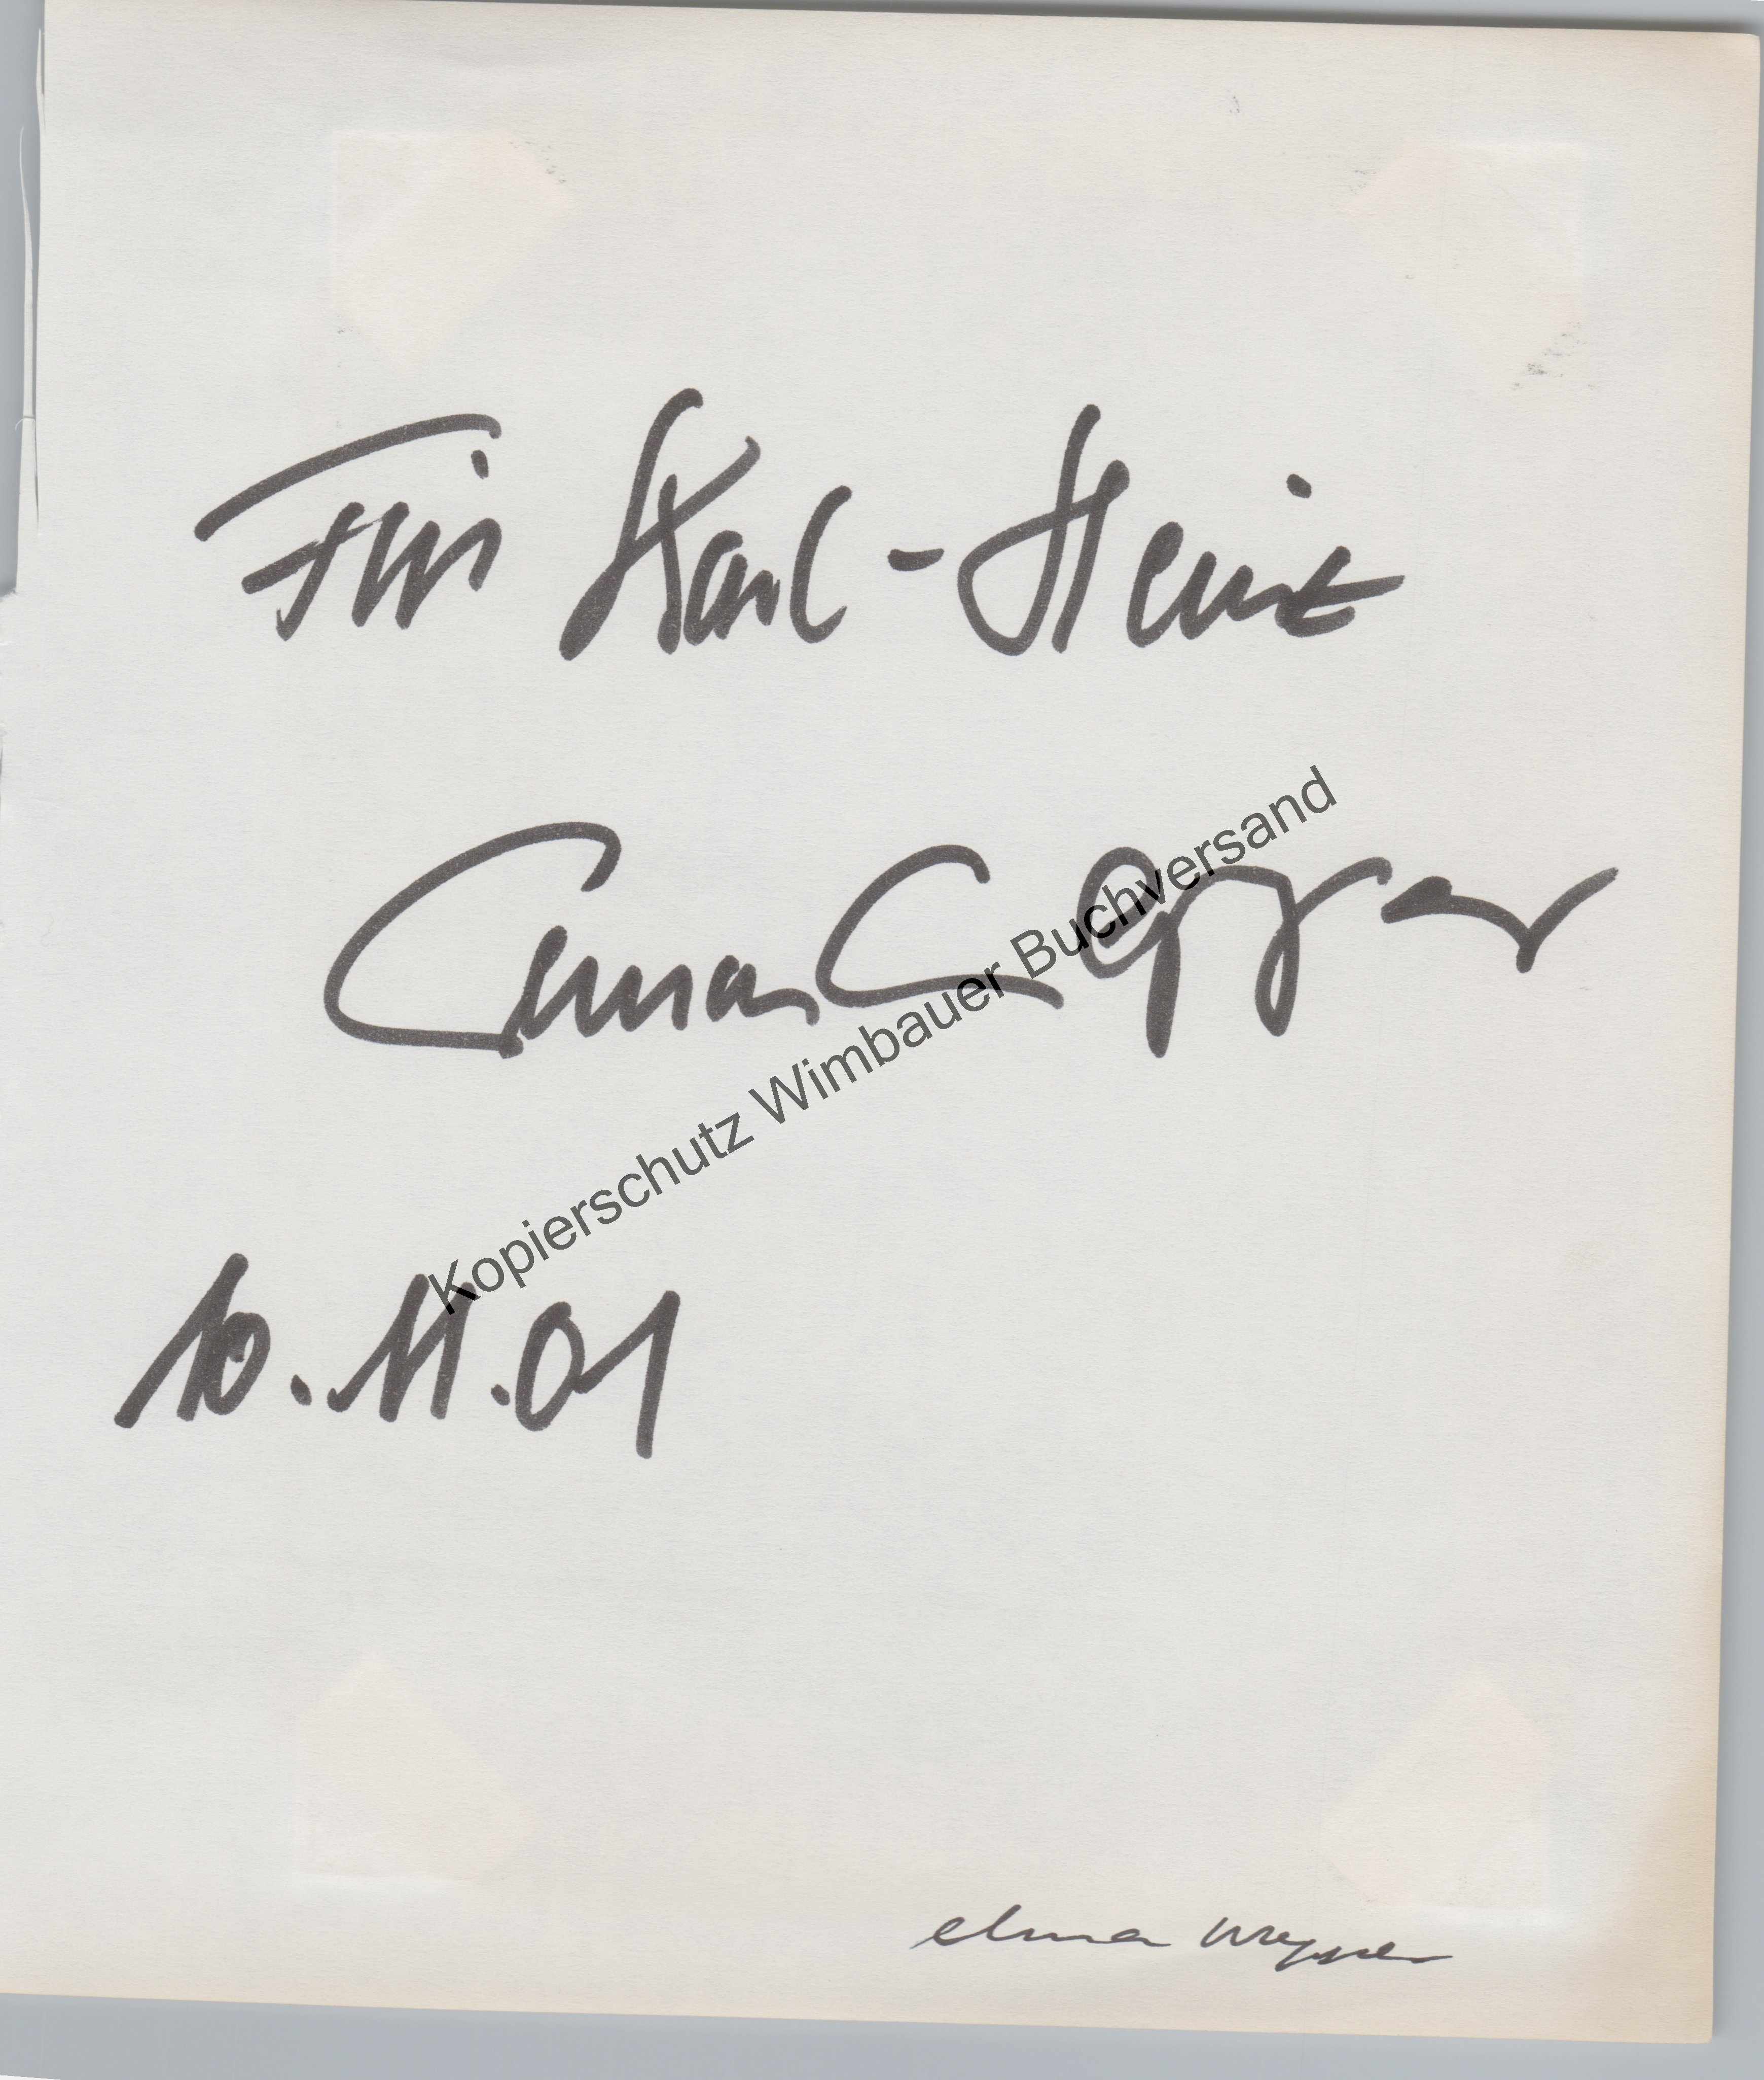 Für Karl-Heinz
Elmar Wepper
Kopierschutz Wimbauer Buchversand
10.11.01
elmar wepper